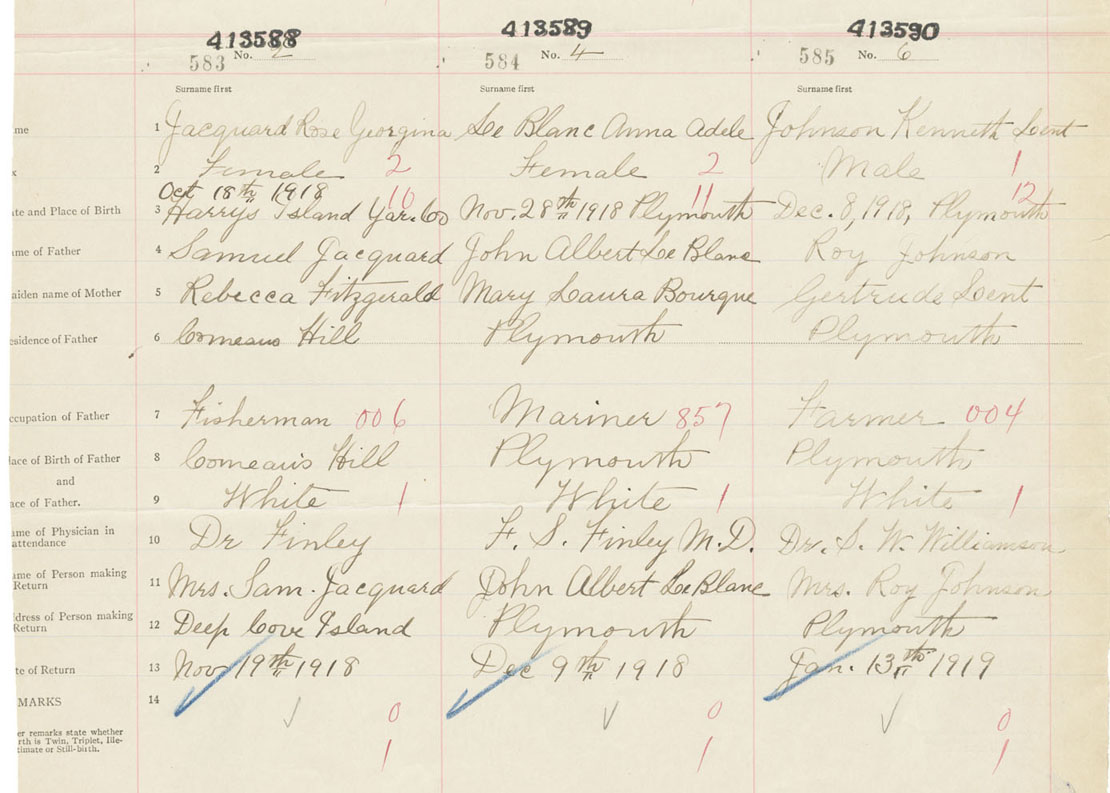 413588 413589 413590
583 No. 2 584 No. 4 585 No. 6
Surname first Surname first Surname first
me 1 Jacquard Rose Georgina Le Blanc Anna Adele Johnson Kenneth Lent
x 2 Female 2 Female 2 Male 1
Oct 18th 1918 10 11 12
ate and Place of Birth 3 Harrys Island Yar. Co Nov. 28th 1918 Plymouth Dec. 8, 1918, Plymouth
ame of Father 4 Samuel Jacquard John Albert Le Blanc Roy Johnson
aiden name of Mother 5 Rebecca Fitzgerald Mary Laura Bourque Gertrude Lent
esidence of Father 6 Comeaus Hill Plymouth Plymouth
ccupation of Father 7 Fisherman 006 Mariner 857 Farmer 004
lace of Birth of Father 8 Comeau's Hill Plymouth Plymouth
and
ace of Father. 9 White 1 White 1 White 1
ame of Physician in
attendance 10 Dr Finley F. S. Finley M.D. Dr. S. W. Williamson
ame of Person making
Return 11 Mrs. Sam. Jacquard John Albert Le Blanc Mrs. Roy Johnson
ddress of Person making
Return 12 Deep Cove Island Plymouth Plymouth
te of Return 13 Nov 19th 1918 Dec 9th 1918 Jan. 13th 1919
MARKS 14
0 0 0
er remarks state whether
rth is Twin, Triplet, Ille-
timate or Still-birth.
1 1 1